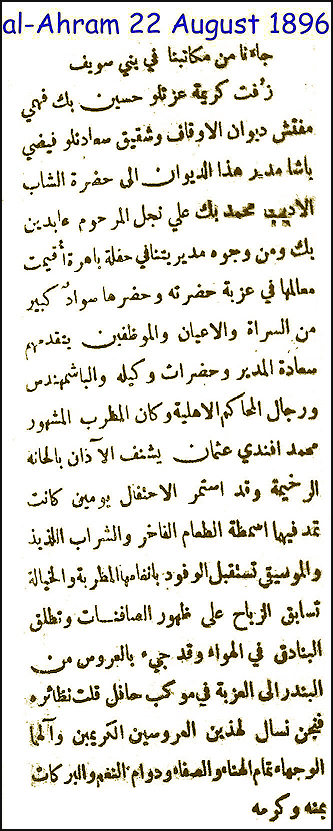 al-Ahram 22 August 1896
جاءنا من مكاتبنا في بني سويف
زُفت كريمة عزتلو حسين بك فهمي
مفتش ديوان الاوقاف وشقيق سعادتلو فيضي
باشا مدير هذا الديوان الى حضرة الشاب
الاديب محمد بك علي نجل المرحوم عابدين
بك ومن وجوه مديريتنا في حفلة باهرة أقيمت
معالمها في عزبة حضرته وحضرها سواد كبير
من السراة والاعيان والموظفين يتقدمهم
سعادة المدير وحضرات وكيله والباشمهندس
ورجال المحاكم الاهلية وكان المطرب المشهور
محمد افندي عثمان يشنف الآذان بالحانه
الرخيمة وقد استمر الاحتفال يومين كانت
تمد فيها اسمطة الطعام الفاخر والشراب اللذيذ
والموسيقى تستقبل الوفود بانغامها المطربة والخيالة
تسابق الرياح على ظهور الصافنات وتطلق
البنادق في الهواء وقد جيء بالعروس من
البندر الى العزبة في موكب حافل قلت نظائره
فنحن نسال لهذين العروسين الكريمين وآلهما
الوجهاء تمام الهناء والصفاء ودوام النعم والبركات
بمنه وكرمه